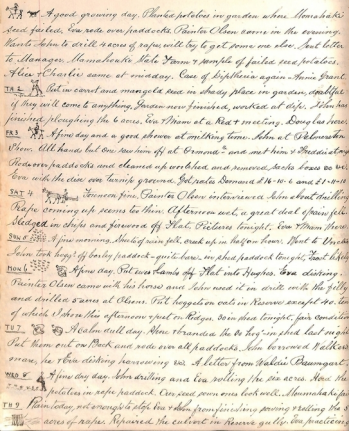 A good growing day. Planted potatoes in garden where Momahaki
seed failed. Eva rode over paddocks. Painter Olsen came in the evening.
Wants John to drill 4 acres of rape, will try to get some one else. Sent letter
to Manager, Momahaki State Farm & sample of failed seed potatoes.
Alex & Charlie came at midday. Case of Diptheria again Annie Grant.
TH 2 Put in carrot and mangold seed in shady place in garden, doubtful
if they will come to anything. Garden now finished, worked at dip. John has
finished ploughing the 6 acres. Eva & Mum at Red + meeting. Douglas here.
FR 3 A fine day and a good shower at milking time. John at Palmerston
Show. All hands but one saw him off at Ormond and met him & Freddie
Rode over paddocks and cleaned up woolshed and removed sacks boxes
Eva with the disc over turnip ground. Got rates Demand £16-10-6 and
SAT 4 Forenoon fine. Painter Olsen interviewed John about drilling
Rape coming up seems too thin. Afternoon wet, a great deal of rain fell.
Sledged in chips and firewood off Flat. Pictures tonight, Eva & Mum there
SUN 5 A fine morning. Shots of rain fell, creek up in half an hour. Went to
John took hogs of barley paddock quite bare, in shed paddock tonight.
MON 6 A fine day. Put ewes lambs off Flat into Hughes. Eva disking
Painter Olsen came with his horse and John used it on drill with the filly
and drilled 5 acres at Olsens. Put hoggets on oats in Reserve except 40
of which I shore this afternoon & put on Ridge. 30 in shed tonight, fair condition
TU 7 A calm dull day. Shore & branded the 30 hogs in shed last night
Put them out on Back and rode over all paddocks. John borrowed Walkers
more, he & Eva disking harrowing A letter from Waldie Baumgart
WED 8 A fine dry day. John drilling and Eva rolling the six acres. Hoed the
potatoes in rape paddock. Own seed sown ones look well. Momahaki
TH 9 Rain today, not enough to stop Eva & John from finishing sowing & rolling the
acres of rape. Repaired the culvert in Reserve gully. Eva practicing